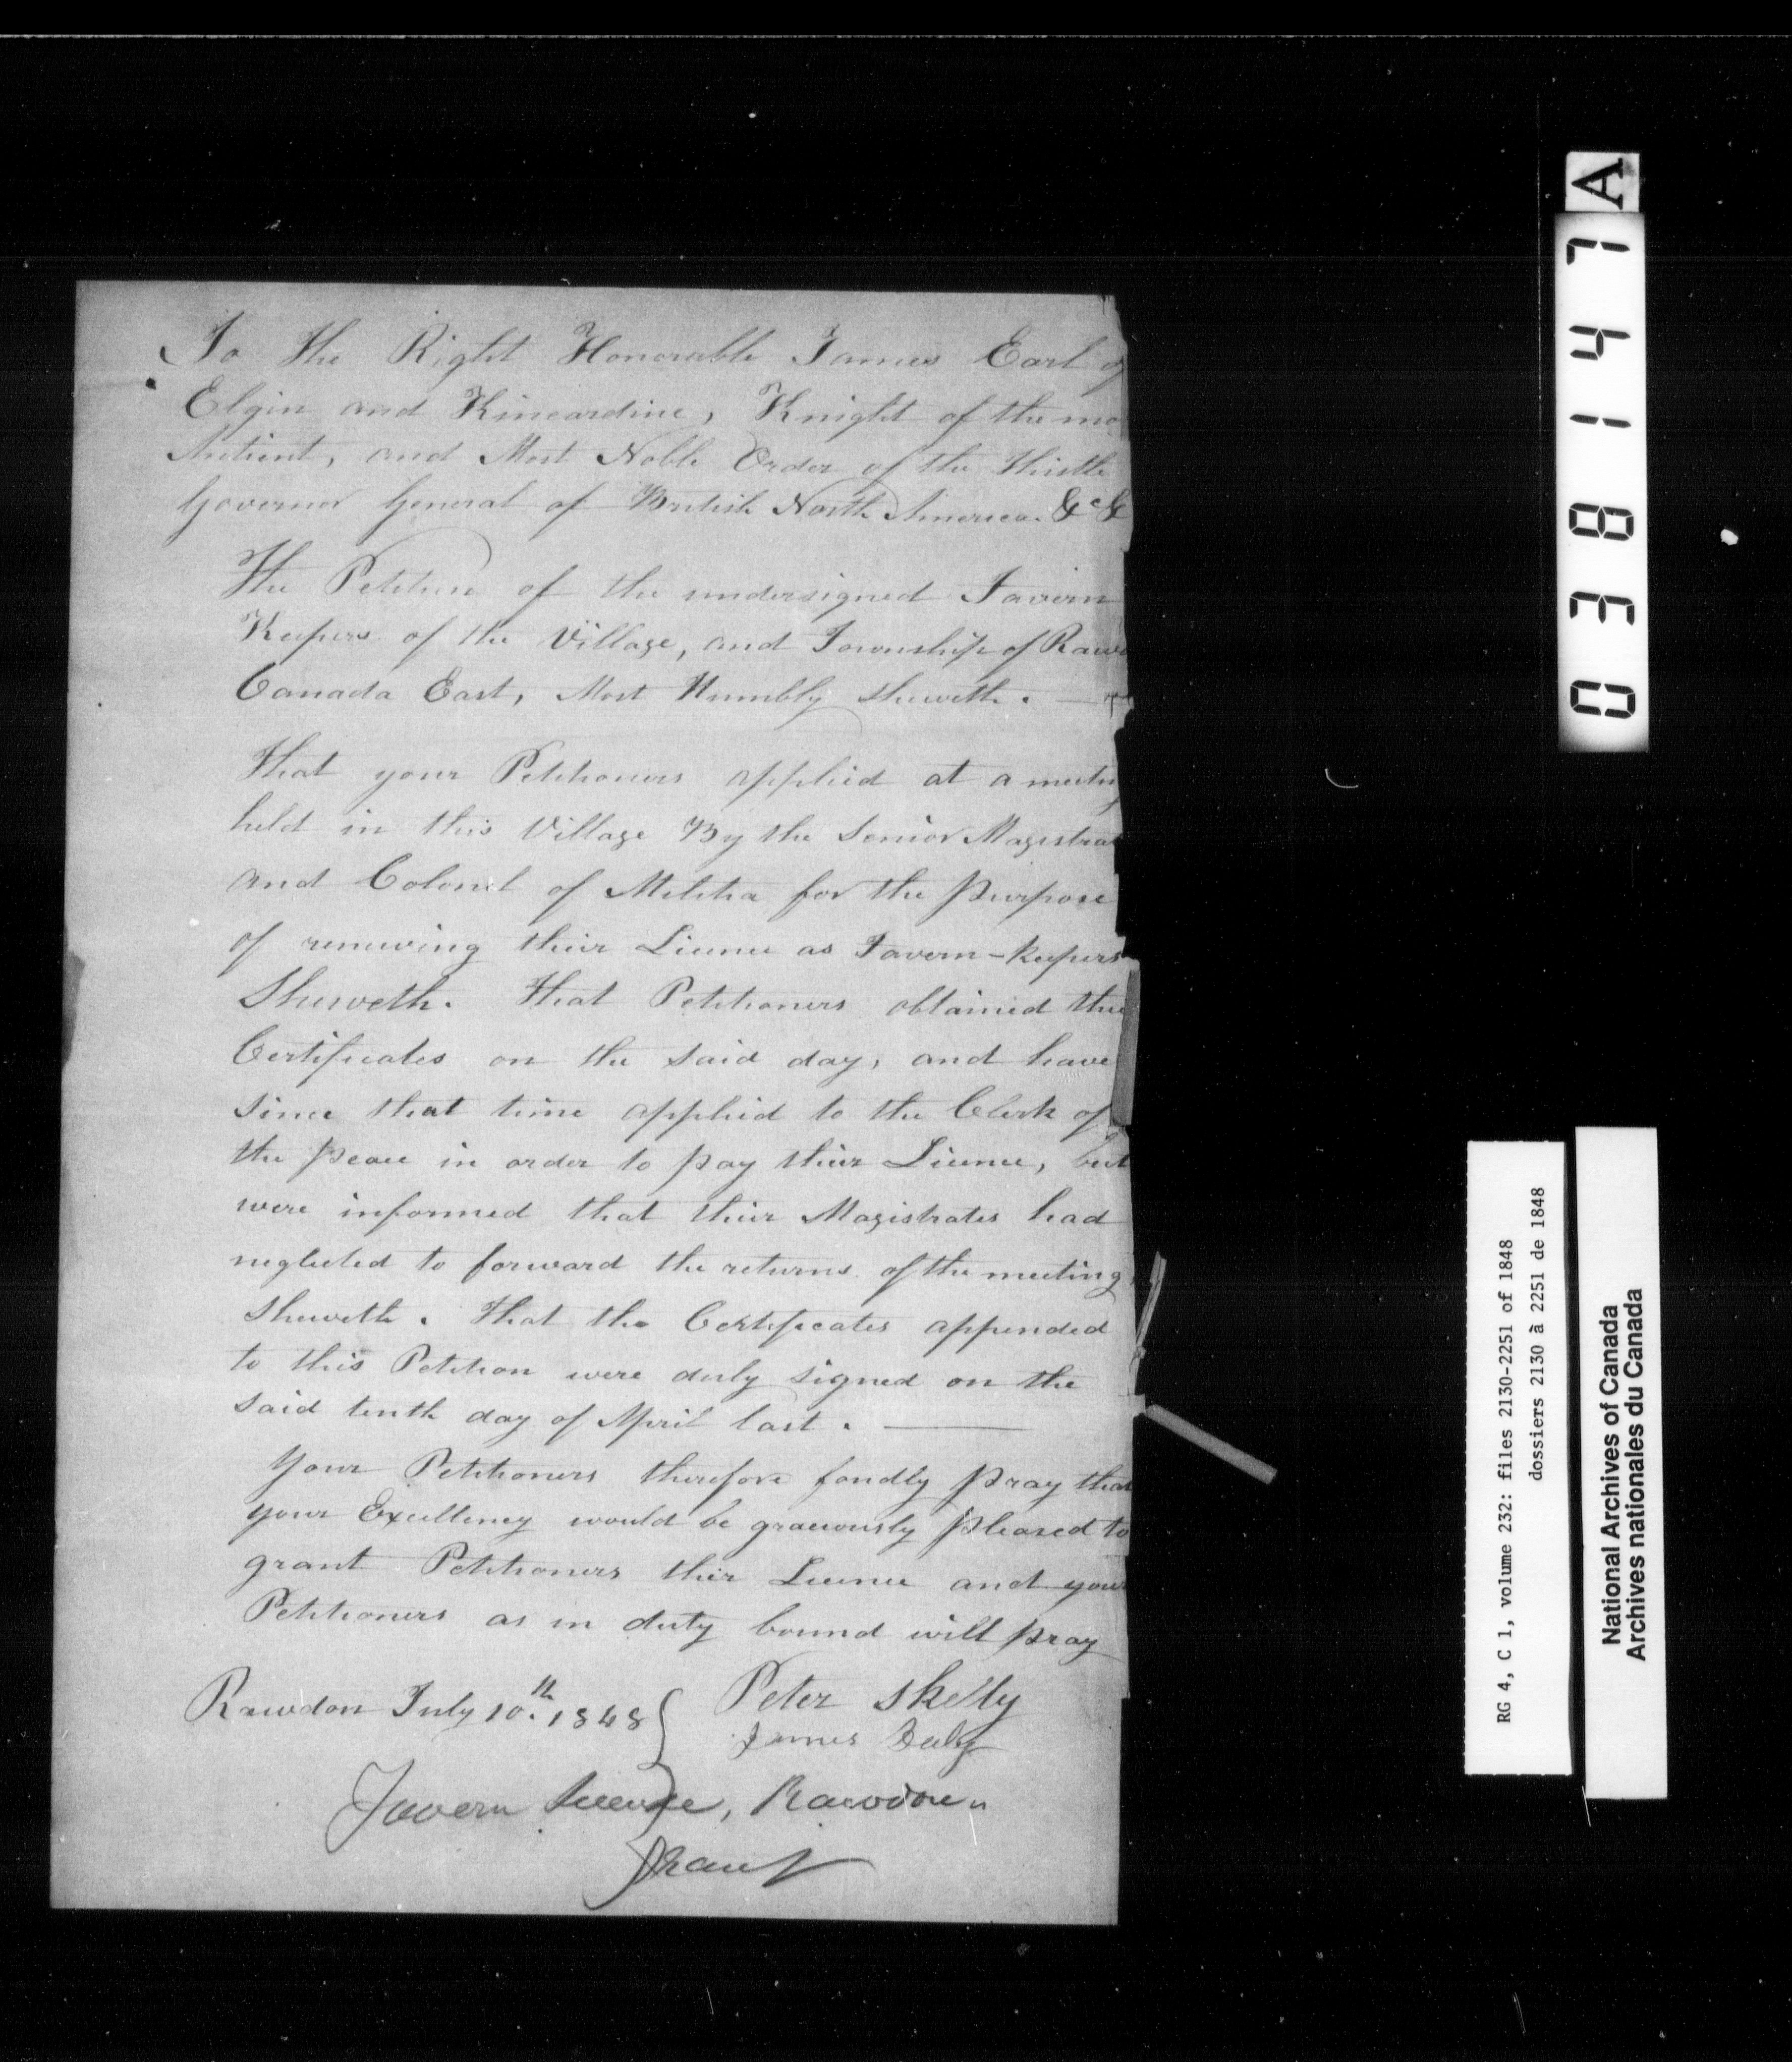 To the Right Honorable James Earl of
Elgin and Kincardine, Knight of the mo
Antient, and Most Noble Order of the Thistle
Governor General of British North America. &c &
The Petition of the undersigned Tavern
Keepers of the Village, and Township of Raw
Canada East, Most Humbly sheweth. —
That your Petitioners applied at a meetin
held in this Village By the Senior Magistrat
and Colonel of Militia for the purpose
of renewing their Licence as Tavern-keepers
Sheweth. That Petitioners obtained the
Certificates on the said day, and have
since that time applied to the Clerk of
the peace in order to pay their Licence, but
were informed that their Magistrates had
neglected to forward the returns of the meeting
Sheweth. That the Certificates appended
to this Petition were duly signed on the
said tenth day of April last. —
Your Petitioners therefore fondly pray that
your Excellency would be graciously pleased to
grant Petitioners their Licence and your
Petitioners as in duty bound will pray
Rawdon July 10th. 1848 } Peter Skelly
James Daly
Tavern Licence, Rawdon
A
038147
RG 4, C 1, volume 232: files 2130-2251 of 1848
dossiers 2130 à 2251 de 1848
National Archives of Canada
Archives nationales du Canada